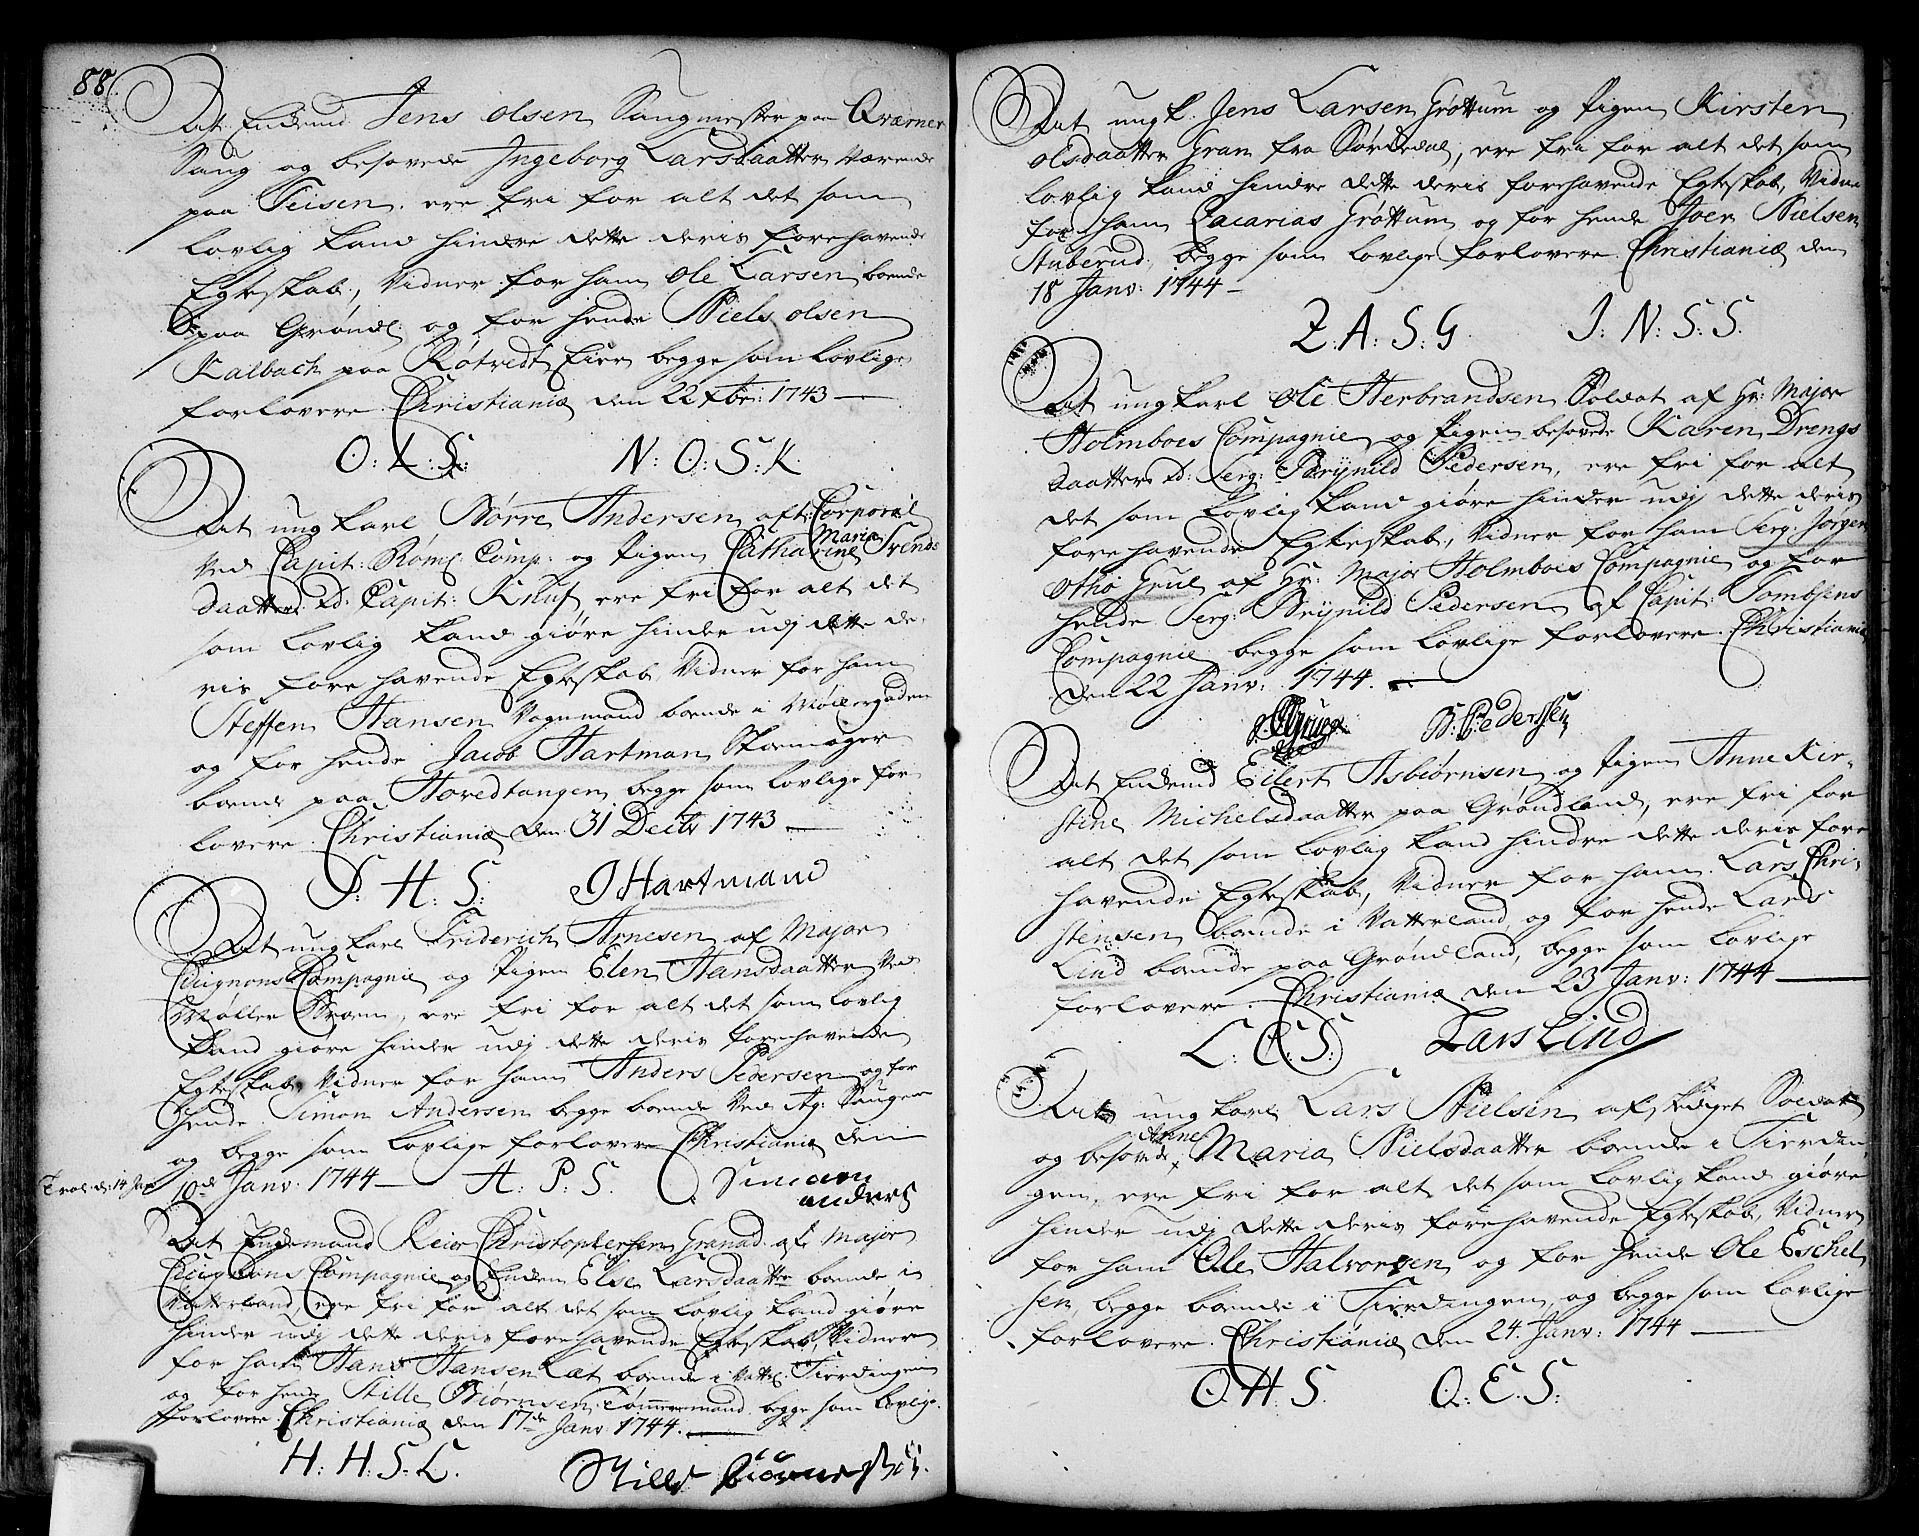 88.
At Enkemd Jens Olsen Saugmester paa Qværner
Saug og besovede Ingeborg Larsdaatter Værende
paa Teisen, ere fri for alt det som
lovlig kand hindre dette deris forehavende
Egteskab, Vidner for ham Ole Larsen boende
paa Grønl. og for hende Niels Olsen
Kalbach paa Røtvedt Eier begge som lovlige
forlovere Christianiæ den 22 Xbr: 1743
O: L: S: N: O: S. K
At ung Karl Børre Andersen aft: Corporal
Ved Capit: Røm. Comp: og Pigen Catharine Maria Svends
daatter ved Capit: Knuf, ere fri for alt det
som lovlig kand giøre hinder udj dette de-
ris fore havende Egteskab, Vidner for ham
Steffen Hansen Vognmand boende i Møllergaden
og for hende Jacob Hartman Skomager
boende paa Hovedtangen begge som lovlige for
lovere Christianiæ den 31 Decbr 1743
S. H. S. J Hartmand
At ung karl Friderich Arnesen af Major
Cicignons Compagnie og Pigen Elen Hansdaatter Ved
Møller Broen, ere fri for alt det som lovlig
kand giøre hinder udj dette deris forehavende
Egteskab, Vidner for ham Anders Pedersen og for
hende Simon Andersen begge boende Ved Ag: Saugene
og begge som lovlige forlovere Christianiæ den
10de Janv: 1744 A. P. S. Simoen
anders
At Enkemand Reier Christophersen Granad. af Major
Cicignons Compagnie og Enken Else Larsdaatter boende i
Vatterland, ere fri for alt det som lovlig kand giøre
hinder udj dette deris forehavende Egteskab, Vidner
for ham Hans Hansen Læt boende i Vatter. Fierdingen
og for hende Stille Biørnsen Tømmermand begge som lovlige
forlovere Christianiæ den 17de Janv: 1744.
H: H: S: L. Stille Biørnsen
At ung k. Jens Larsen Grøttum og Pigen Kirsten
Olsdaatter Gran fra Sørkedal, ere fri for alt det som
lovlig kand hindre dette deris forehavende Egteskab, Vidner
for ham Zacarias Grøttum og for hende Joen Nielsen
Stuberud, begge som lovlige forlovere Christianiæ den
18 Janv: 1744
Z. A. S. G. J: N: S: S.
At ung karl Ole Herbrandsen Soldat af Hr: Major
Holmboes Compagnie og Pigen besovede Karen Drengs
daatter ved Serg: Brynild Pedersen, ere fri for alt
det som lovlig kand giøre hinder udj dette deris
fore havende Egteskab, Vidner for ham Serg: Jørgen
Otho Grue af Hr: Major Holmboes Compagnie og for
hende Serg: Brynild Pedersen af Capit: Tombsens
Compagnie begge som lovlige forlovere. Christianiæ
den 22 Janv: 1744.
B: Pedersen
At Enkemd Eilert Asbiørnsen og Pigen Anne Kir-
stine Michelsdaatter paa Grønland, ere fri for
alt det som lovlig kand hindre dette deris fore
havende Egteskab, Vidner for ham Lars Chri-
stensen boende i Vatterland, og for hende Lars
Lind boende paa Grønland, begge som lovlige
forlovere. Christianiæ den 23 Janv: 1744
L: C: S: Lars Lind
At ung karl Lars Nielsen af Skiliget Soldat
og besovede Anne Maria Nielsdaatter boende i Fierdin
gen, ere fri for alt det som lovlig kand giøre
hinder udj dette deris forehavende Egteskab, Vidner
for ham Ole Halvorsen og for hende Ole Eschel
sen, begge boende i Fierdingen, og begge som lovlige
forlovere. Christianiæ den 24. Janv: 1744
O. H. S. O: E. S: